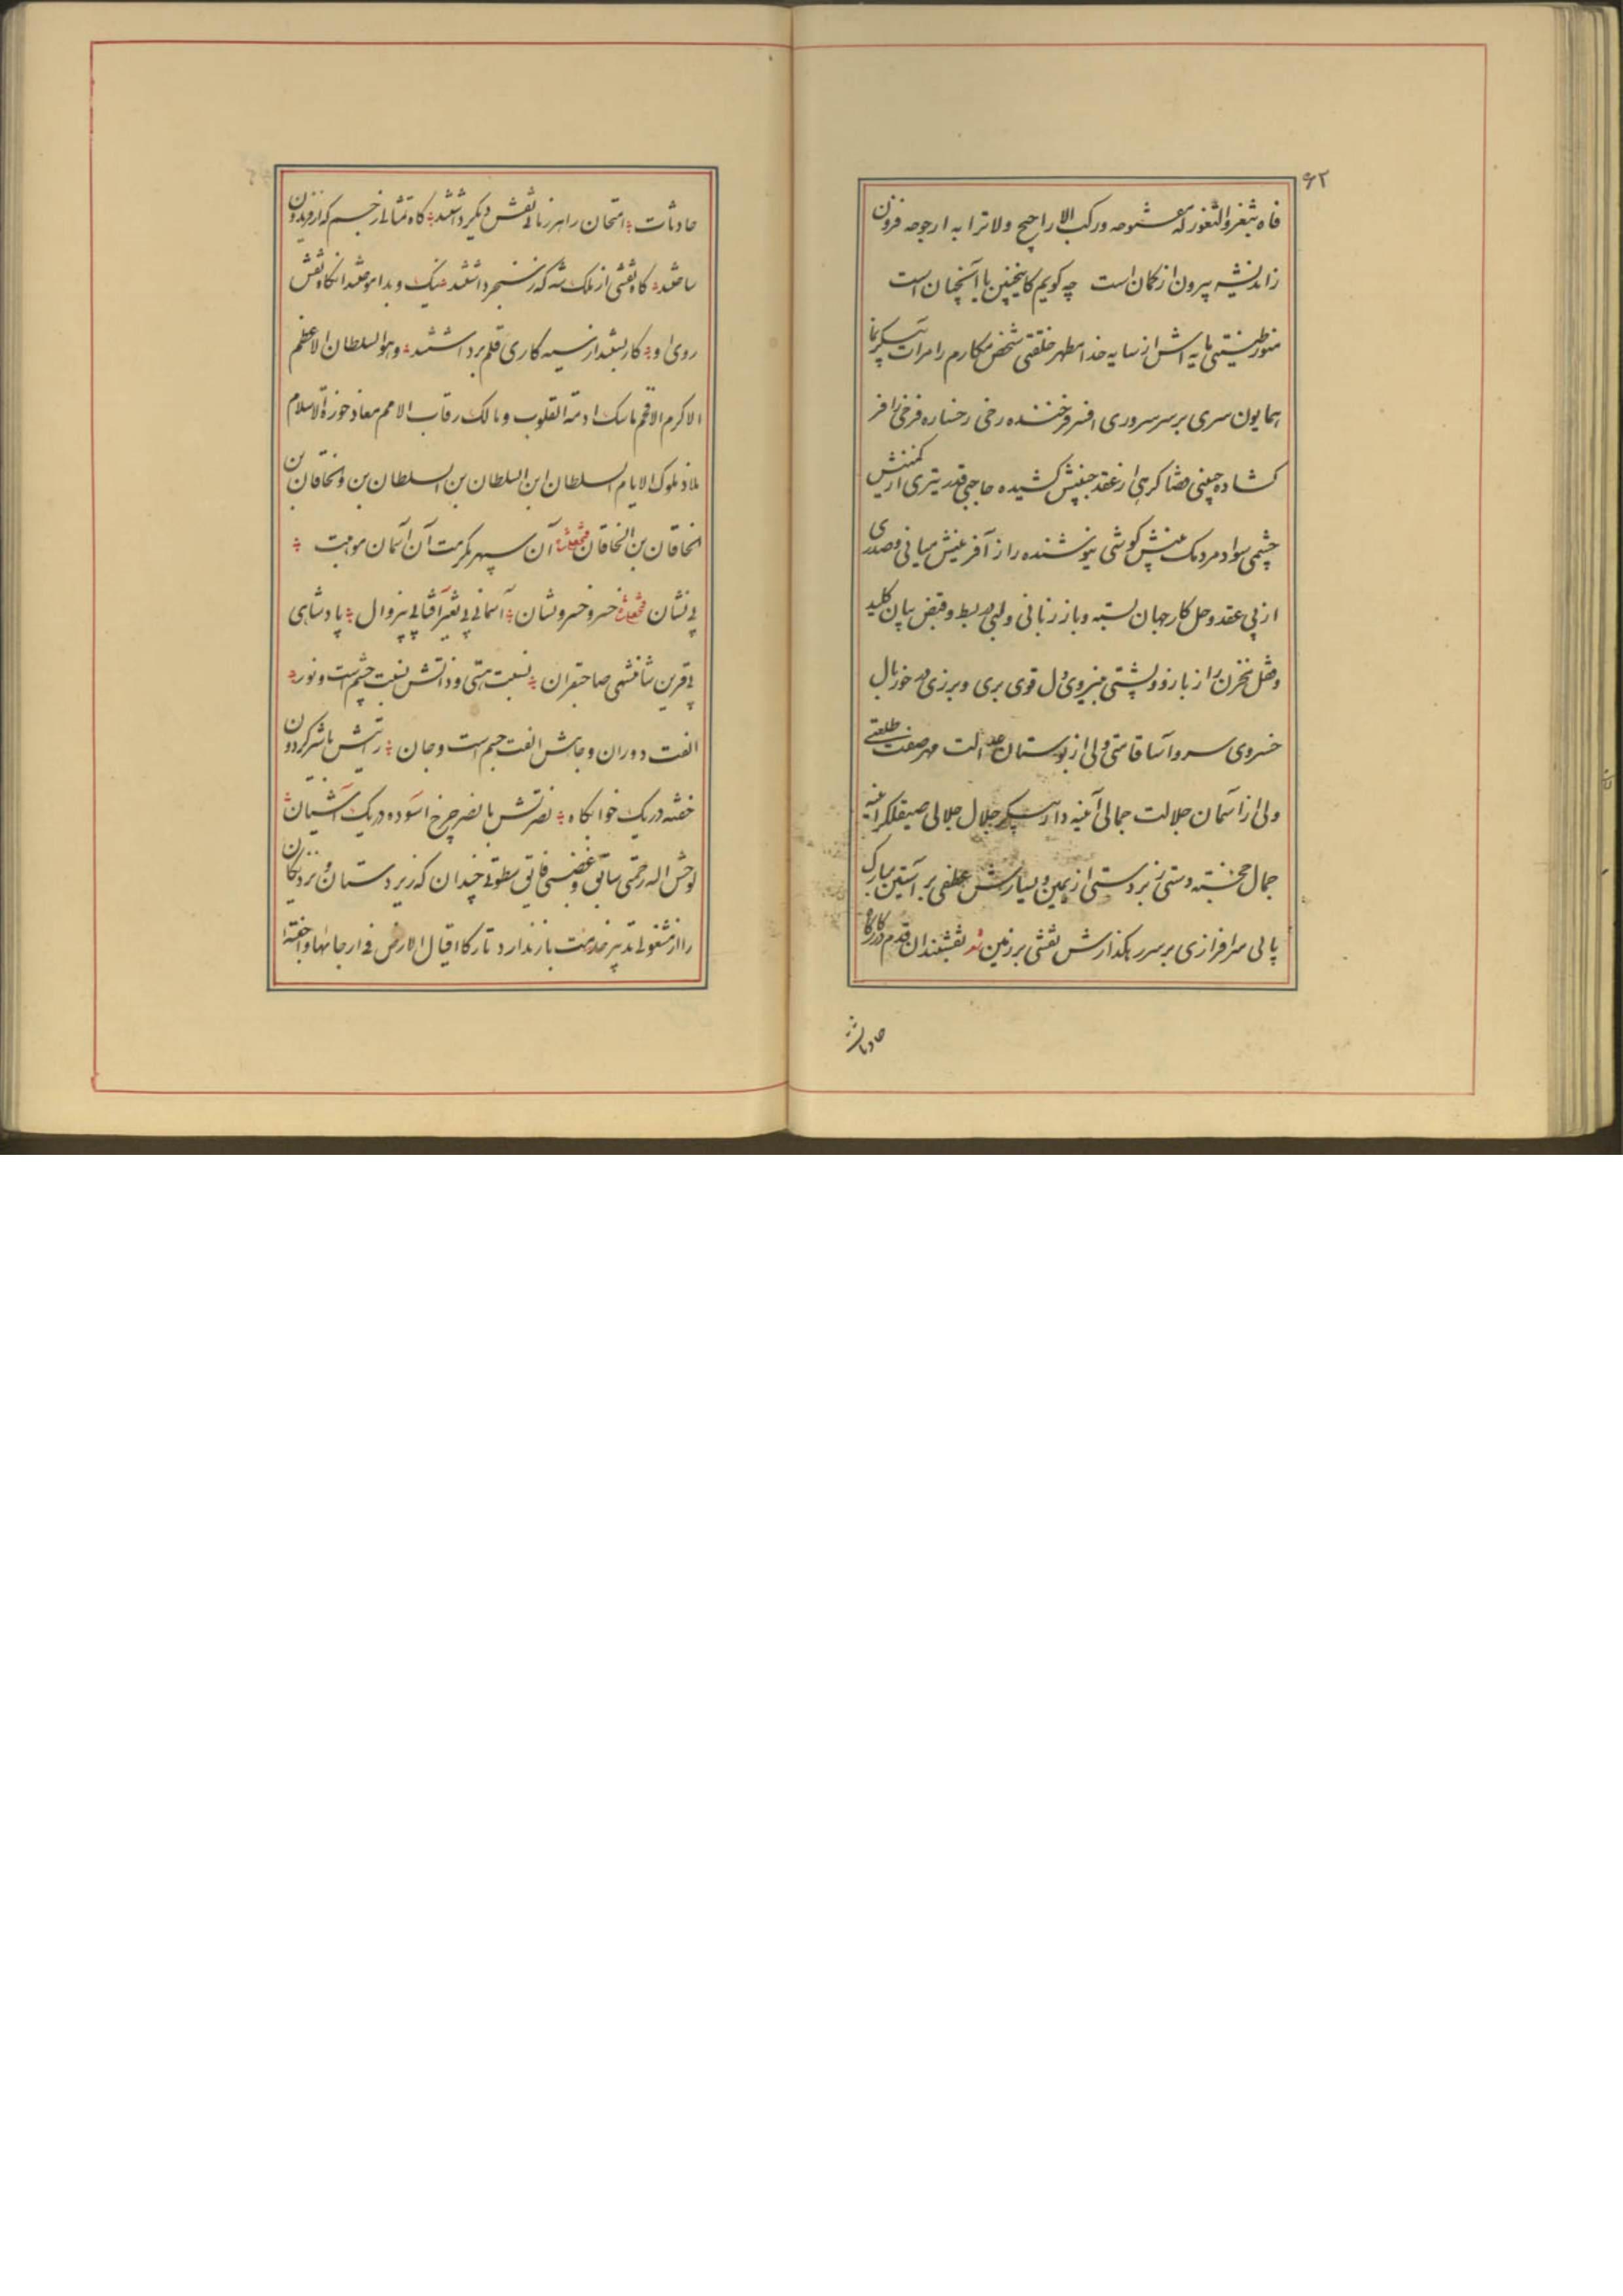 ۶۲
فاه بثغر والثغور له مشنوحه ورکب الا راجیح ولا ترا به ارجوحه فزون
زاندیشه بیرون از کمان است چه کویم کاینچنین یا آنچنان است
منور طینتی مایه اش از سایه خدا مطهر خلقتی شخص مکارم را مرات پیکر نما
همایون سری بر سر سروری افسر فرخنده رخی رخساره فرخی را فر
کشاده جبینی قضا کرهی از عقد جبینش کشیده حاجبی قدر تیری از کمینش
چشمی سواد مردمک بینش کوشی نیوشنده راز آفرینش میانی و صدری
از پی عقد و حل کار جهان بسته و باز زبانی و لبی در بسط و قبض بیان کلید
و قفل مخزن راز بازو و پشتی بنیروی دل قوی بری و برزی در خورد یال
خسروی سرو آسا قامتی ولی از بوستان عدالت مهر صفت طلعتی
ولی از آسمان جلالت جمالی آینه دار پیکر جلال جلالی صیقلکر آینه
جمال خجسته دستی زبردستی از یمین و یسارش عطفی بر آستین مبارک
پایی سرافرازی بر سر رهکذارش نقشی بر زمین نقشبندان قدم در کارکاه
حادثات
حادثات امتحان را هر زمانی نقش دیکر داشتند کاه تمثالی از جسم که از فریدون
ساختند کاه نقشی از ملک شه که ز سنجر داشتند نیک و بد آموختند آنکاه نقش
روی او کار بستند از سیه کاری قلم برداشتند وهو السلطان الاعظم
الاکرم الافخم ماسک ادمة القلوب ومالک رقاب الامم معاذ حوزة الاسلام
ملاذ ملوک الایام السلطان ابن السلطان بن السلطان بن والخاقان بن
الخاقان بن الخاقان فتحعلیشاه آن سپهر مکرمت آن آسمان موهبت
بی نشان فتحعلیشاه خسرو خسرو نشان آسمانی بی تغیر آفتابی بیزوال پادشاهی
بی قرین شاهنشهی صاحبقران نسبت هستی و ذاتش نسبت چشم است و نور
الفت دوران و جاهش الفت جسم است و جان رتیش با شیر کردون
خفته در یک خوابکاه نصرتش با نسر چرخ آسوده در یک آشیان
لوحش اله رحمتی سابق و غضبی فایق سطوتی چندان که زیردستان و نزدیکان
را از مشغولی تدبیر خدمت باز ندارد تارکا اقیال الارض فی ارجائها واخفته